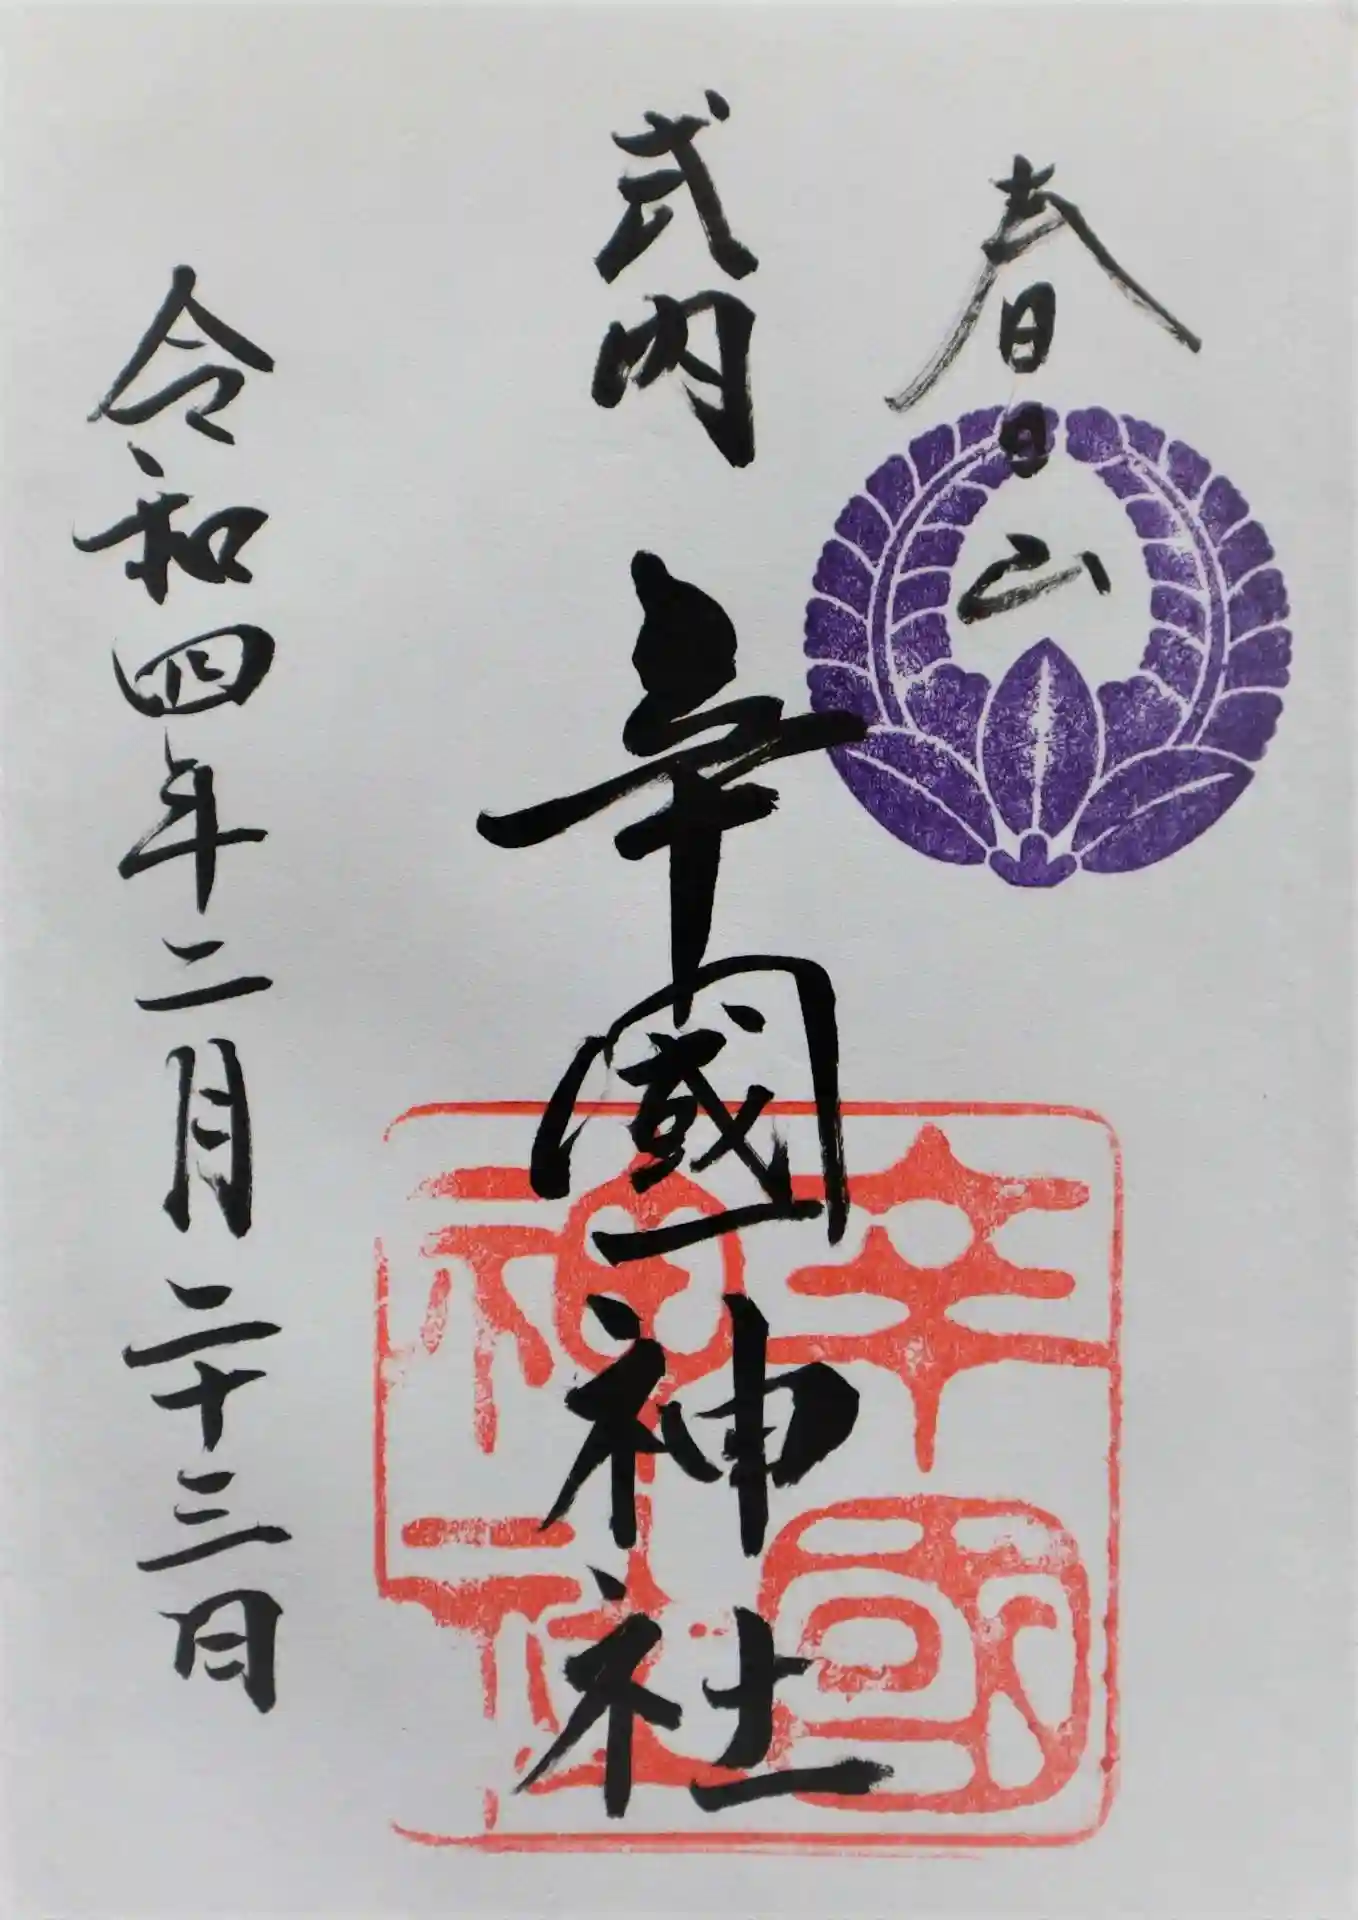 春日山
式内
辛國神社
辛國
神社
令和四年二月二十三日